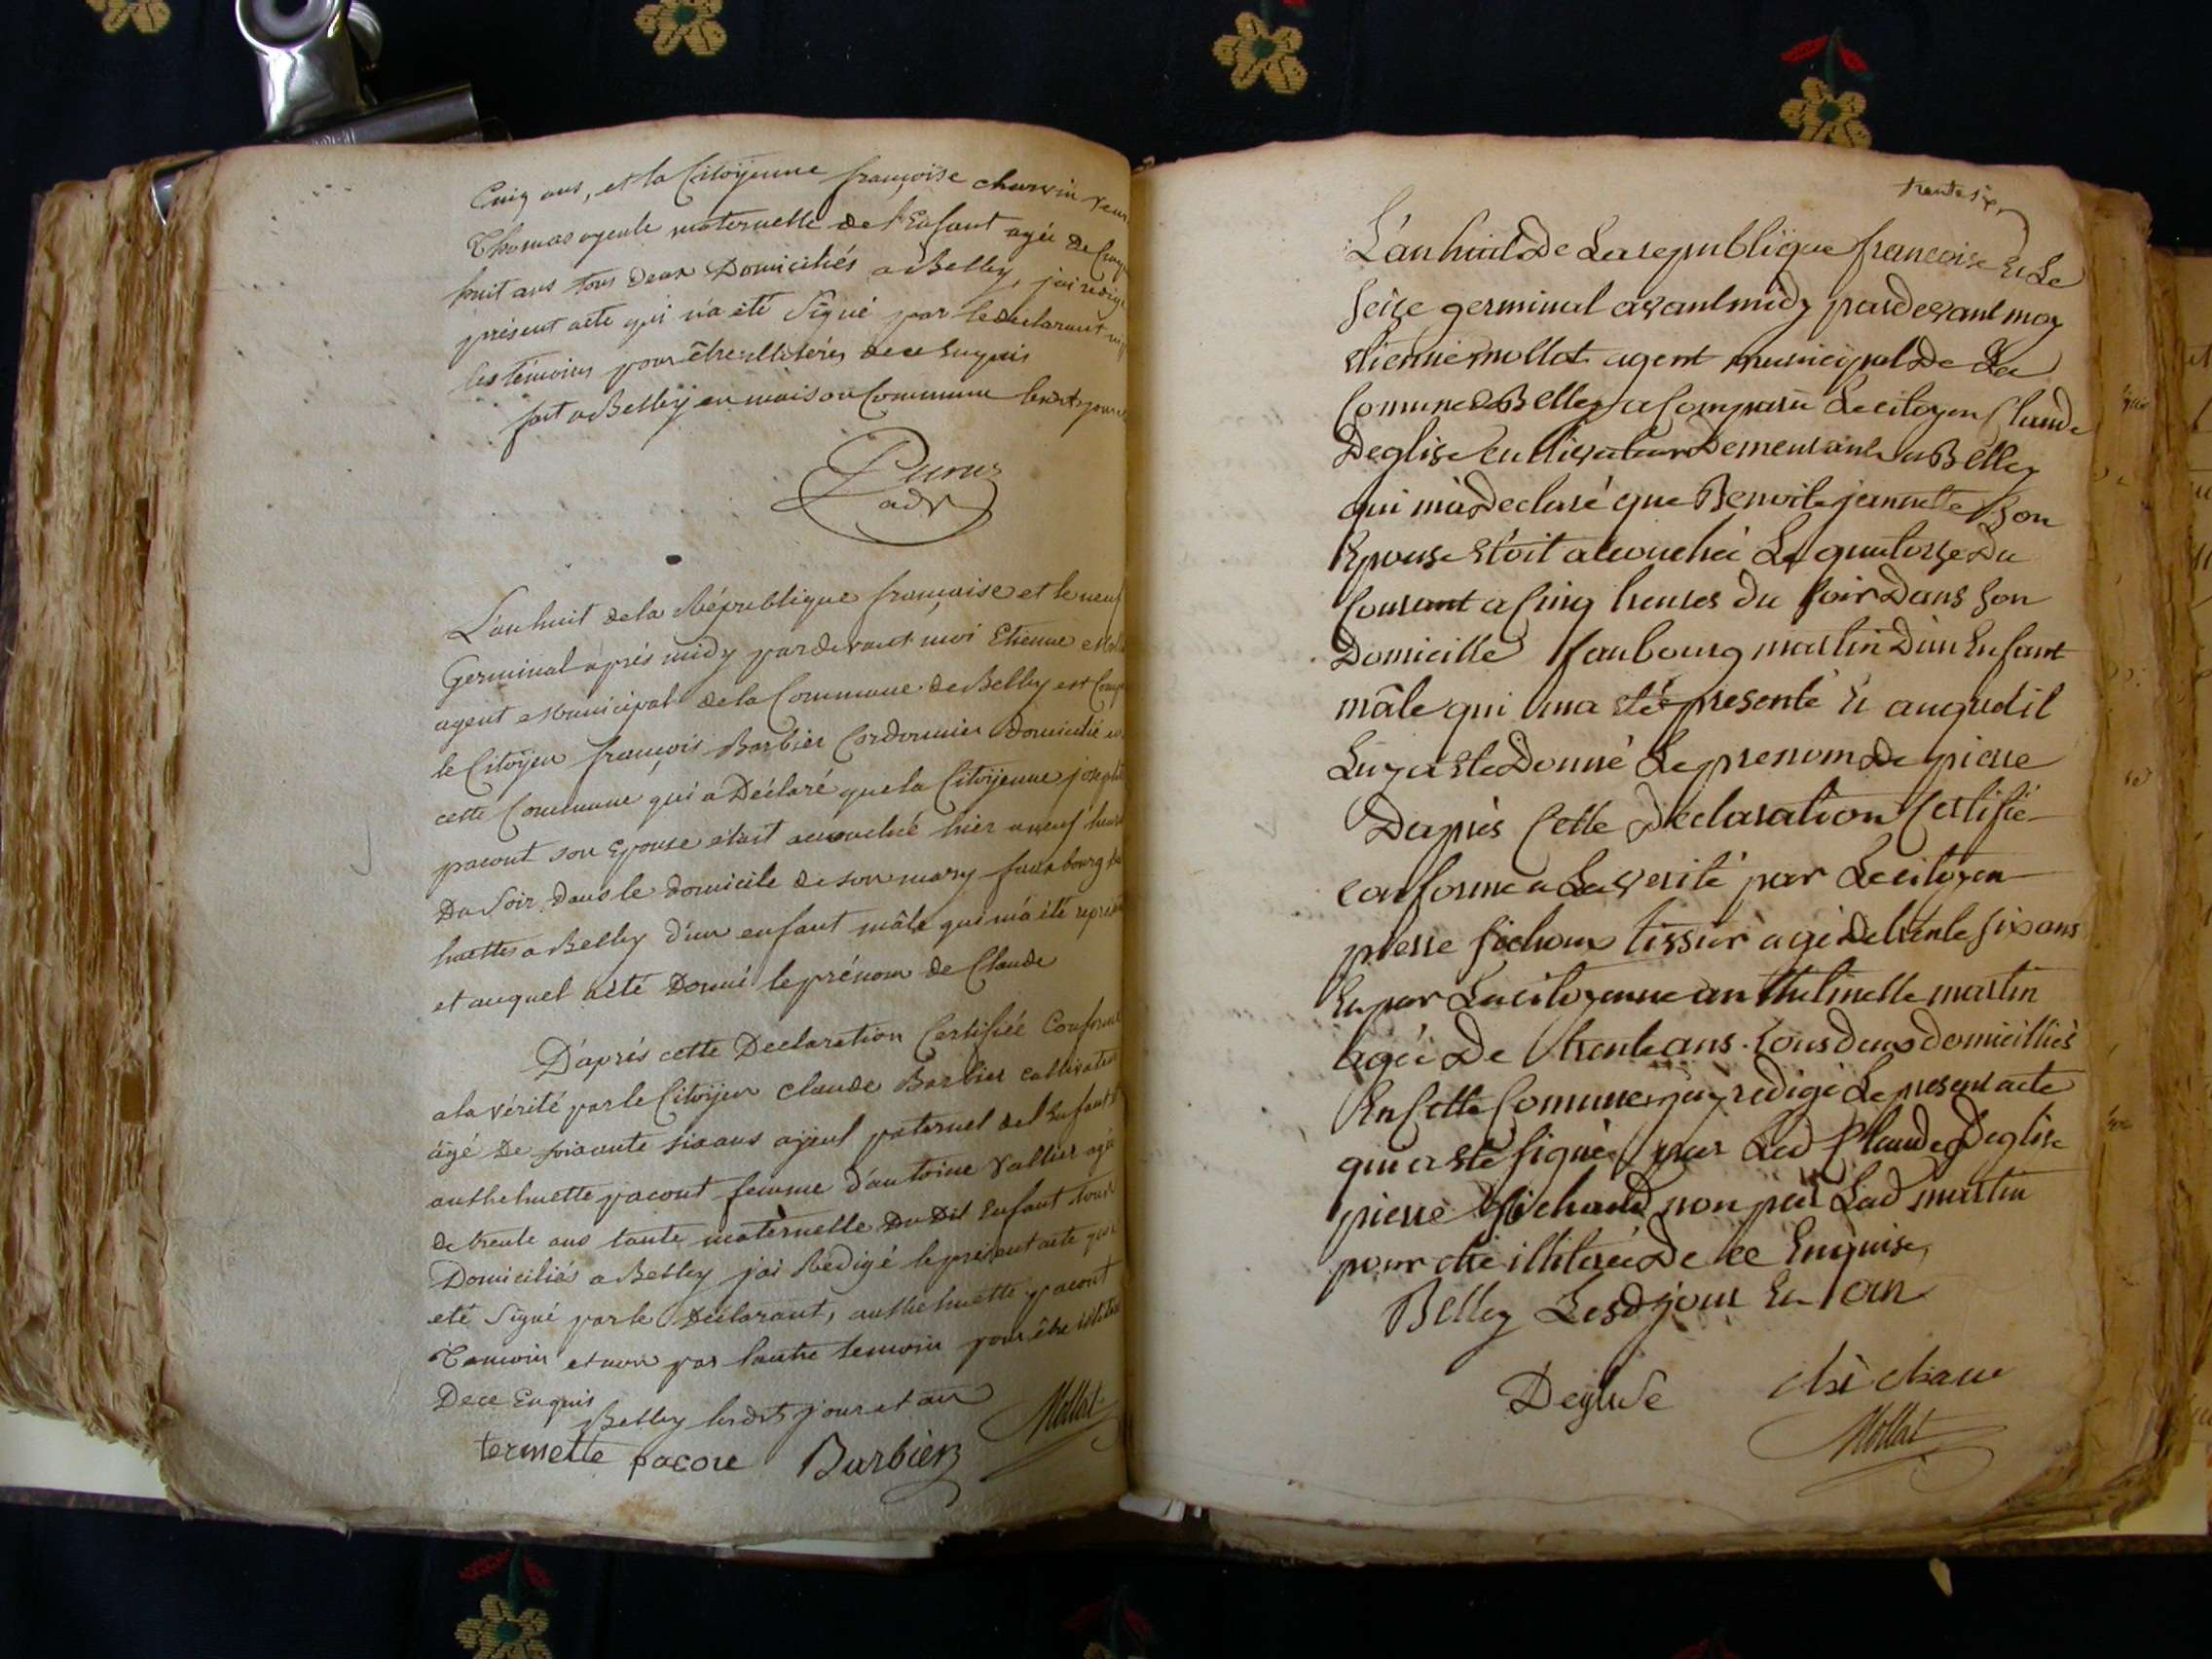 Cinq ans, et la Citoÿenne françoise charvin veuv
Thomas ayeule maternelle de l'Enfant agée de Cinq
huit ans tous deux Domiciliés a Belley, j'ai rédigé
présent acte qui n'a été Signé par le declarant ny
les témoins pour être illitérés de ce Enquis
fait a Belleÿ en maison Commune lesdts jour
adt
L'an huit de la République françoise et le neuf
Germinal après midy pardevant moi Etienne Moll
agent Municipal de la Commune de Belley est Comp
le Citoÿen françois Barbier Cordonnier domicilié en
cette Commune qui a Déclaré que la Citoÿenne joseph
pacout son Epouse était accouché hier a neuf heur
Du Soir dans le domicile de son mary fauxbourg
huettes a Belley d'un enfant mâle qui m'a été représ
et auquel a été Donné le prénom de Claude
D'après cette Declaration Certifiée Conforme
a la vérité par le Citoÿen claude Barbier cultivateur
âgé De soixante six ans aÿeul paternel de l'Enfant et
anthelmette pacout femme d'antoine Vallier agée
de trente ans tante maternelle Du Dit Enfant tous
Domiciliés a Belley j'ai Redigé le présent acte qui a
eté Signé par le Déclarant, anthelmette pacout
Temoin et non par lautre temoin pour être illitéré
De ce Enquis
Belley lesdts jour et an
termette pacoue Barbier Mollat
trente six
L'an huit De La republique francoise Et Le
seize germinal avant midy pardevant moy
etienne mollat agent municipal De La
Comune de Belley a Comparu Le citoyen Claude
Deglise cultivateur Demeurant a Belley
qui m'a Declaré que Benoite jeannette Son
Epouse Etoit accouchée Le quatorze Du
Courant a Cinq heures du soir Dans Son
Domicille faubourg martin D'un Enfant
mâle qui ma eté presenté Et auquel il
Luy a eté Donné Le prenom De pierre
Dapres Cette Declaration Certifié
conforme a La verité par Le citoyen
pierre fichoux tissur agé de trente six ans
Et par La citoyenne anthelmette martin
agée De trente ans. tous deux domicilliés
En Cette Comune j'ay redigé Le present acte
qui a eté signé par Led Claude Deglise
pierre fichaud non par Lad martin
pour etre illiterée De ce Enquise,
Belley Lesd jour Et an
Deglise chichaue
Mollat